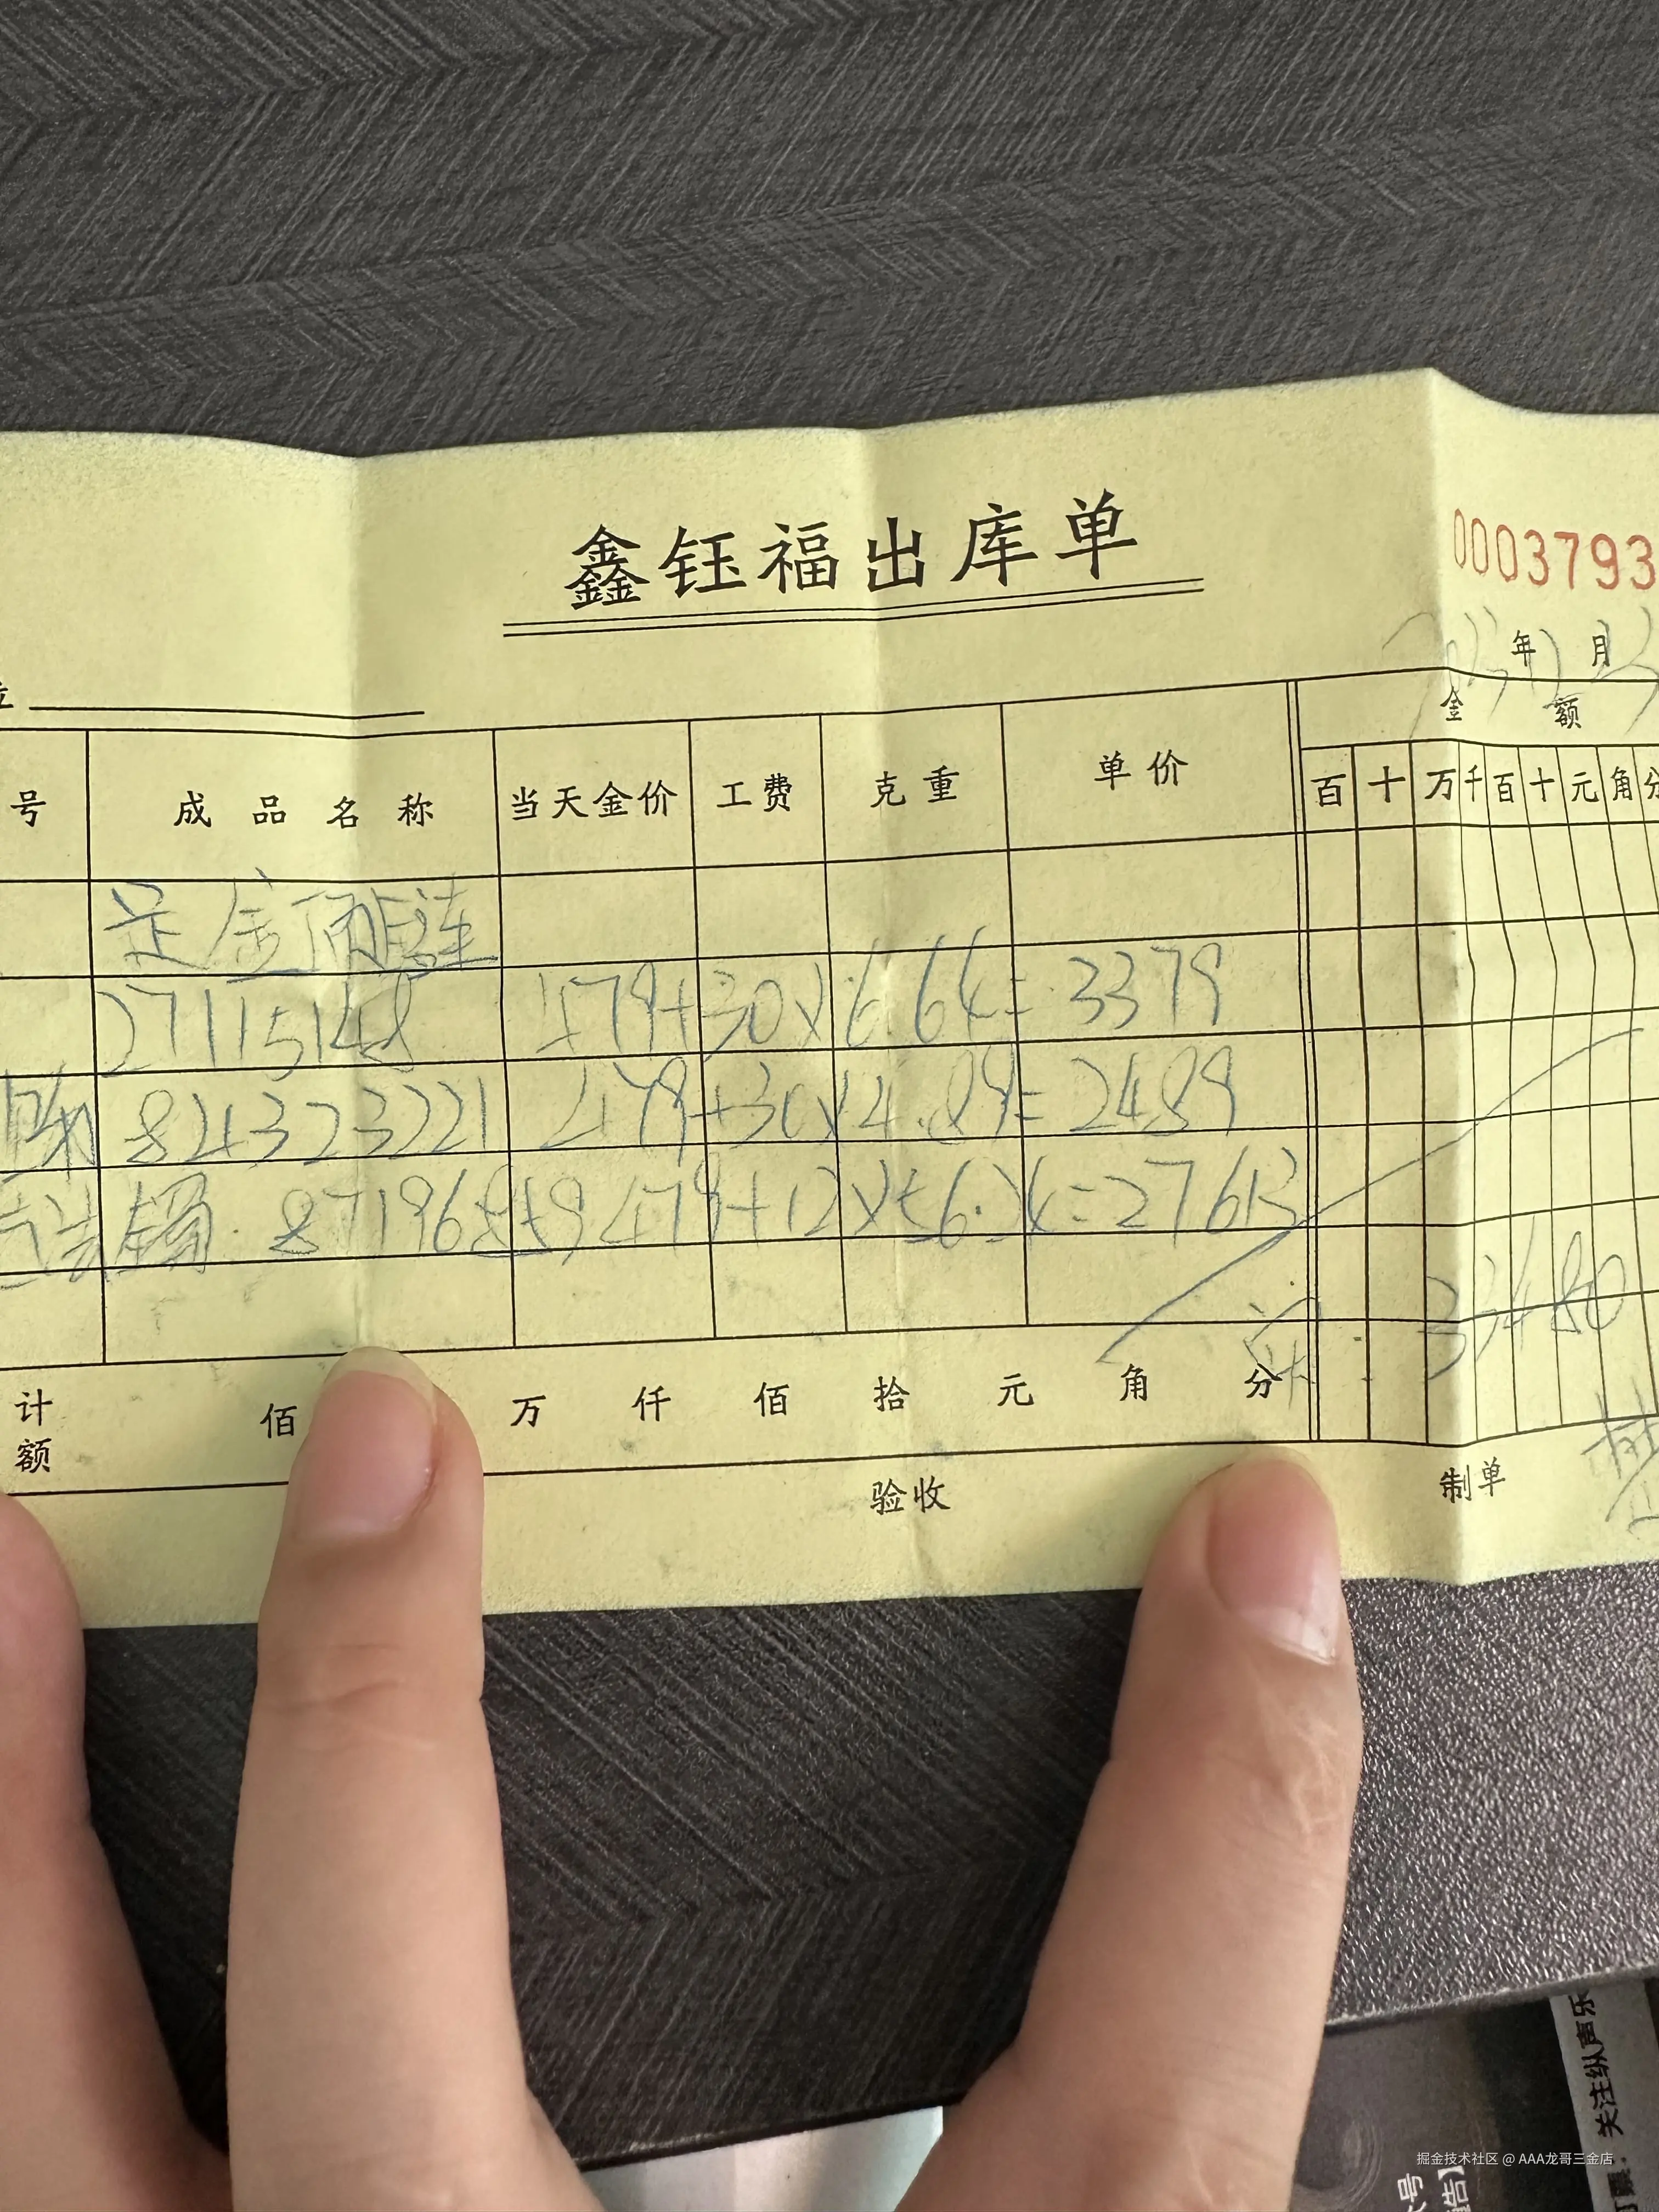 鑫钰福出库单
0003793
年 月
号 成品名称 当天金价 工费 克重 单价 金额
百 十 万 千 百 十 元 角 分
足金
27115148 479+30×6.64=3379
84323221 479+30×4.89=2489
87196859 479+12×56.24=27613
33480
计额 佰 万 仟 佰 拾 元 角 分
验收 制单
关注纵声乐
掘金技术社区 @ AAA龙哥三金店